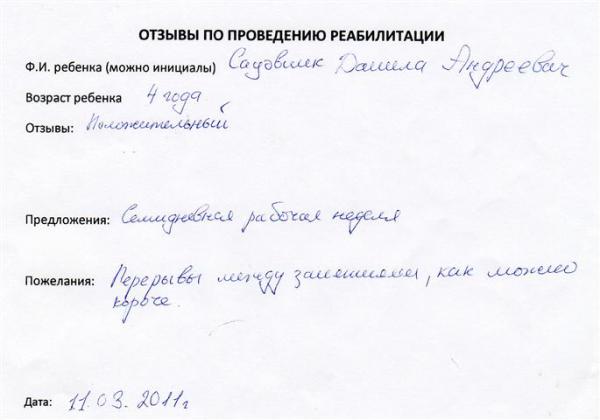 ОТЗЫВЫ ПО ПРОВЕДЕНИЮ РЕАБИЛИТАЦИИ
Ф.И. ребенка (можно инициалы) Данила Андреевич
Возраст ребенка 4 года
Отзывы: Положительный
Предложения: Семидневная рабочая неделя
Пожелания: Перерывы между занятиями, как можно
короче.
Дата: 11.03.2011г